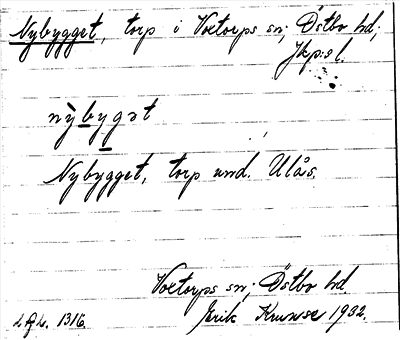 Nybygget, torp i Voxtorps sn; Östbo hd;
Jkp:s l.
nỳbygət
Nybygget, torp und. Ulås.
Voxtorps sn; Östbo hd.
L.A.L. 1316. Erik Krunse 1932.